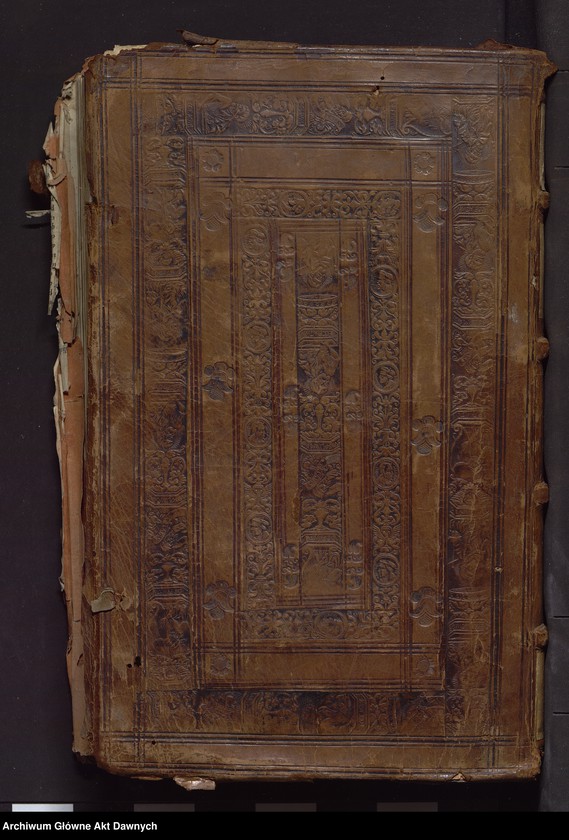 Archiwum Główne Akt Dawnych